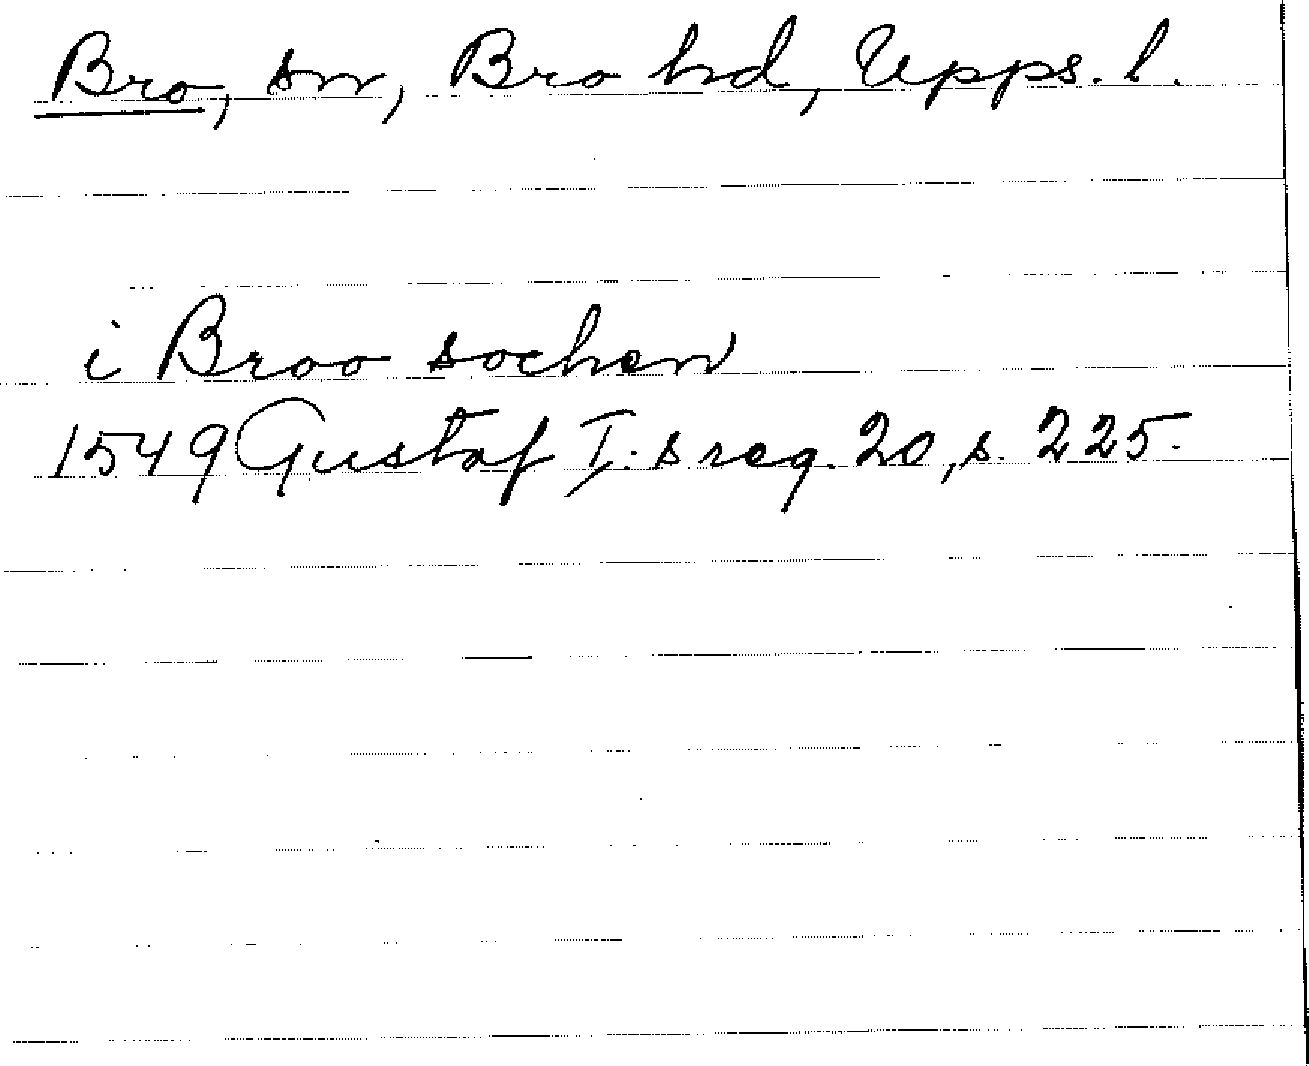 Bro, sn, Bro hd, Upps. l.
i Broo sochen
1549 Gustaf I:s reg. 20, s. 225.